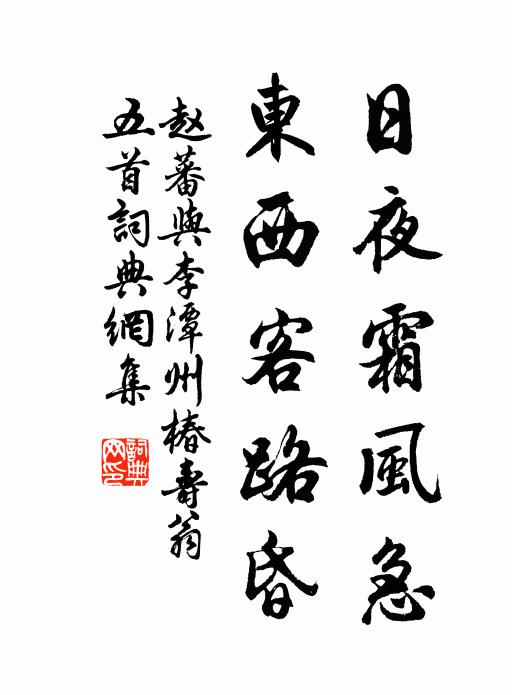 日夜霜風急
東西客路昏
赵蕃與李潭州椿壽翁
五首詞典網集
詞典
网印